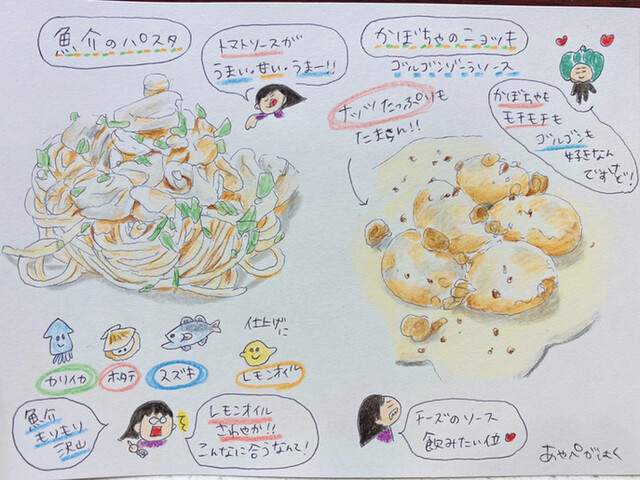 魚介のパスタ
トマトソースが
うまい。甘い。うまー!!
かぼちゃのニョッキ
ゴルゴンゾーラソース
ナッツたっぷりも
たまらん!!
かぼちゃも
モチモチも
ゴルゴンも
好きなん
ですけど!
仕上げに
ヤリイカ
ホタテ
スズキ
レモンオイル
魚介
もりもり
沢山
レモンオイル
さわやか!!
こんなに合うなんて!
チーズのソース
飲みたい位
あやぺがはく